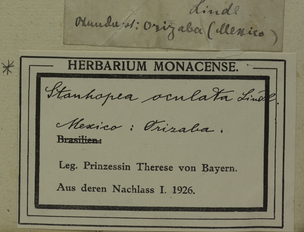 Lindl
Orizaba (Mexico)
*
HERBARIUM MONACENSE.
Stanhopea oculata Lindl.
Mexico: Orizaba.
Brasilien:
Leg. Prinzessin Therese von Bayern.
Aus deren Nachlass I. 1926.